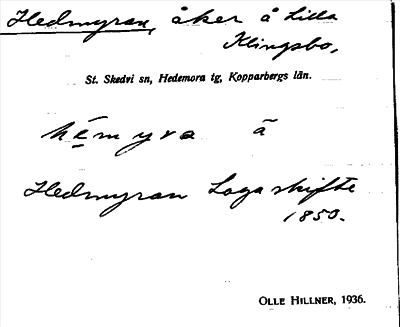 Hedmyran, åker å Lilla
Klingsbo,
St. Skedvi sn, Hedemora tg, Kopparbergs län.
hémyra ã
Hedmyran Laga skifte
1850.
OLLE HILLNER, 1936.